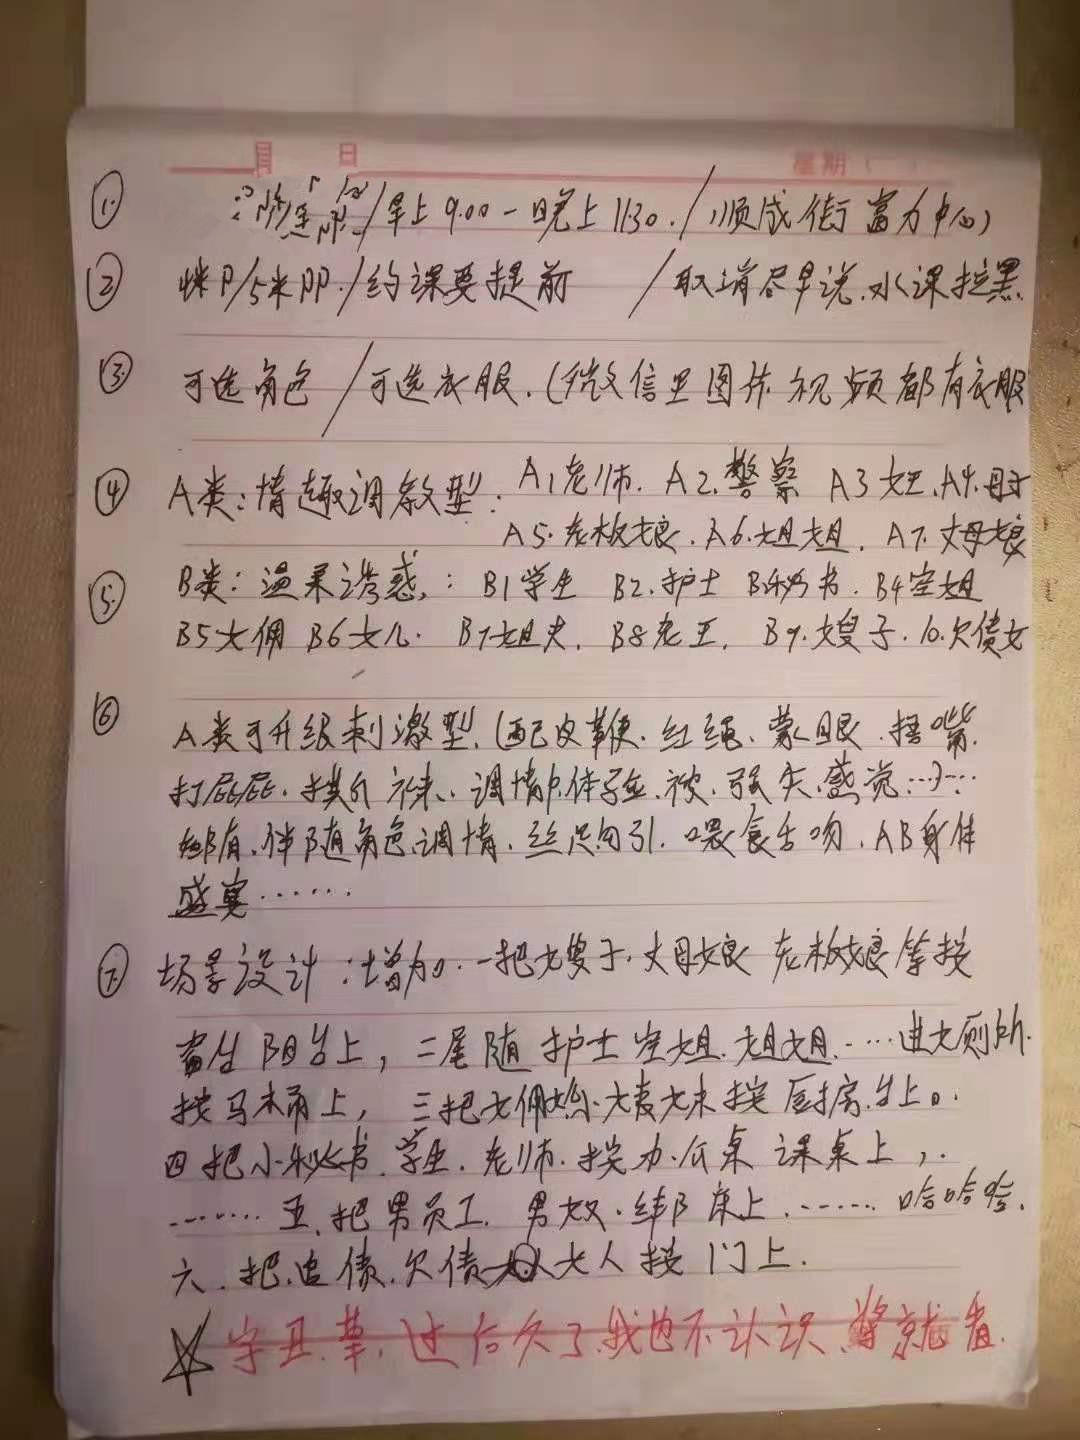 月 日 星期（ ）
① 早上9:00一晚上11:30./顺成街富力中心)
② /约课要提前 /取消尽早说.水课拉黑.
③ 可选角色/可选衣服.(微信里图片视频都有衣服
④ A类:情趣调教型: A1老师. A2.警察 A3女王.A4.母子
A5.老板娘.A6.姐姐. A7.丈母娘
⑤ B类:温柔诱惑,: B1学生 B2.护士 B秘书.B4空姐
B5女佣 B6女儿. B7姐夫. B8老王. B9.嫂子.10.欠债女
⑥ A类可升级刺激型.(配皮鞭.红绳.蒙眼.捂嘴.
打屁屁. 调情.体验.被.强失.感觉……
都有.伴随角色调情.丝足勾引.喂食舌吻.AB身体
盛宴……
⑦ 场景设计:增加.一把嫂子.丈母娘 老板娘等按
窗台阳台上,二尾随护士空姐.姐姐.……进女厕所.
按马桶上, 三把女佣 按厨房台上。.
四把小秘书.学生.老师.按办公桌 课桌上,.
……五.把男员工.男奴.绑床上.……哈哈哈.
六.把追债.欠债女人按门上.
☆字丑.草.过后久了.我也不认识.将就看.